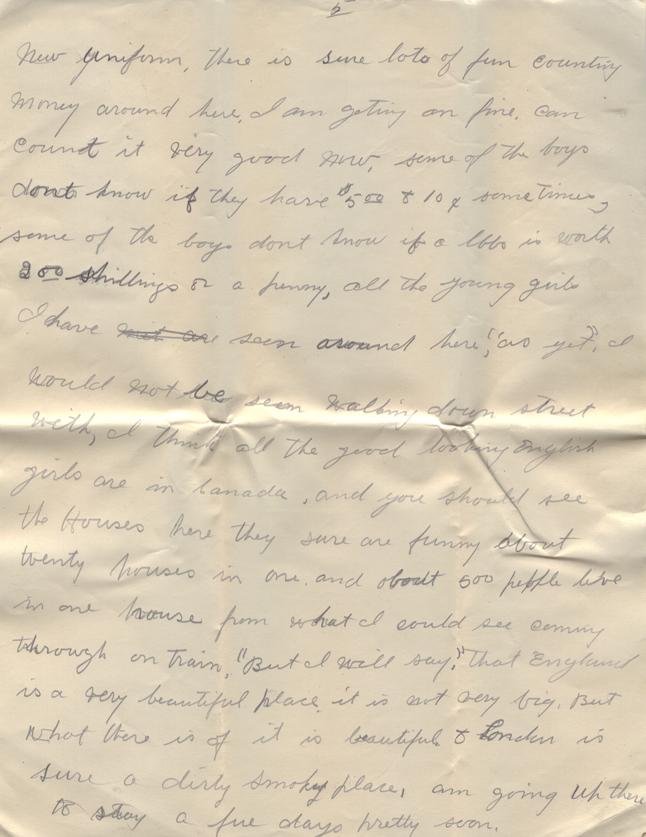 5
New Uniform, there is sure lots of fun counting
money around here, I am geting on fine. can
Count it very good now, some of the boys
dont know if they have $5.00 or 10¢ sometimes,
some of the boys dont know if a lbbs is worth
200 shillings or a penny, all the young girls
I have not are seen around here, "as yet", I
would not be seen walking down street
with, I think all the good looking English
girls are in Canada, and you should see
the Houses here they sure are funny about
twenty houses in one. and about 500 pepple live
in one house from what I could see coming
through on train, "But I will say," That England
is a very beautiful place it is not very big. But
what there is of it is beautiful & London is
sure a dirty smoky place, am going up there
to stay a fue days pretty soon.